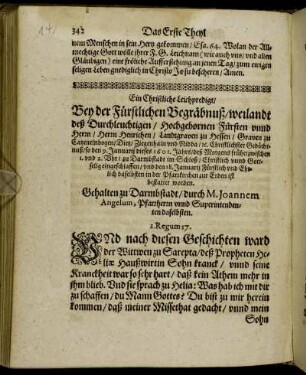 342 Das Erste Theyl
nem Menschen in sein Hertz gekommen / Esa. 64. Wolan der All-
mechtige Gott wölle ihrer F. G. Leichnam (wie auch vns / vnd allen
Gläubigen) eine fröliche Aufferstehung an jenen Tag / zum ewigen
seligen Leben gnediglich in Christo Jesu bescheren / Amen.
Ein Christliche Leichpredigt /
Bey der Fürstlichen Begräbnuß / weilandt
deß Durchleuchtigen / Hochgebornen Fürsten vnnd
Herrn / Herrn Henrichen / Landtgrauen zu Hessen / Grauen zu
Catzenelnbogen / Dietz / Ziegenhain vnd Nidda / &c. Christlichster Gedächt-
nuß so den 9. Januarij dieses 1601. Jahrs / deß Morgens frühe zwischen
1. vnd 2. Vhr / zu Darmbstadt im Schloß / Christlich vnnd Gott-
selig eingeschlaffen / vnd den 18. Januarij Fürstlich vnd Ehr-
lich daselbsten in der Pfarrkirchen zur Erden ist
bestattet worden.
Gehalten zu Darmbstadt / durch M. Joannem
Angelum, Pfarrherrn vnnd Superintenden-
ten daselbsten.
1. Regum 17.
VNd nach diesen Geschichten ward
der Wittwen zu Sarepta / deß Propheten He-
liæ Haußwirtin Sohn kranck / vnnd seine
Kranckheit war so sehr hart / daß kein Athem mehr in
ihm blieb. Vnd sie sprach zu Helia: Was hab ich mit dir
zu schaffen / du Mann Gottes? Du bist zu mir herein
kommen / daß meiner Missethat gedacht / vnnd mein
Sohn